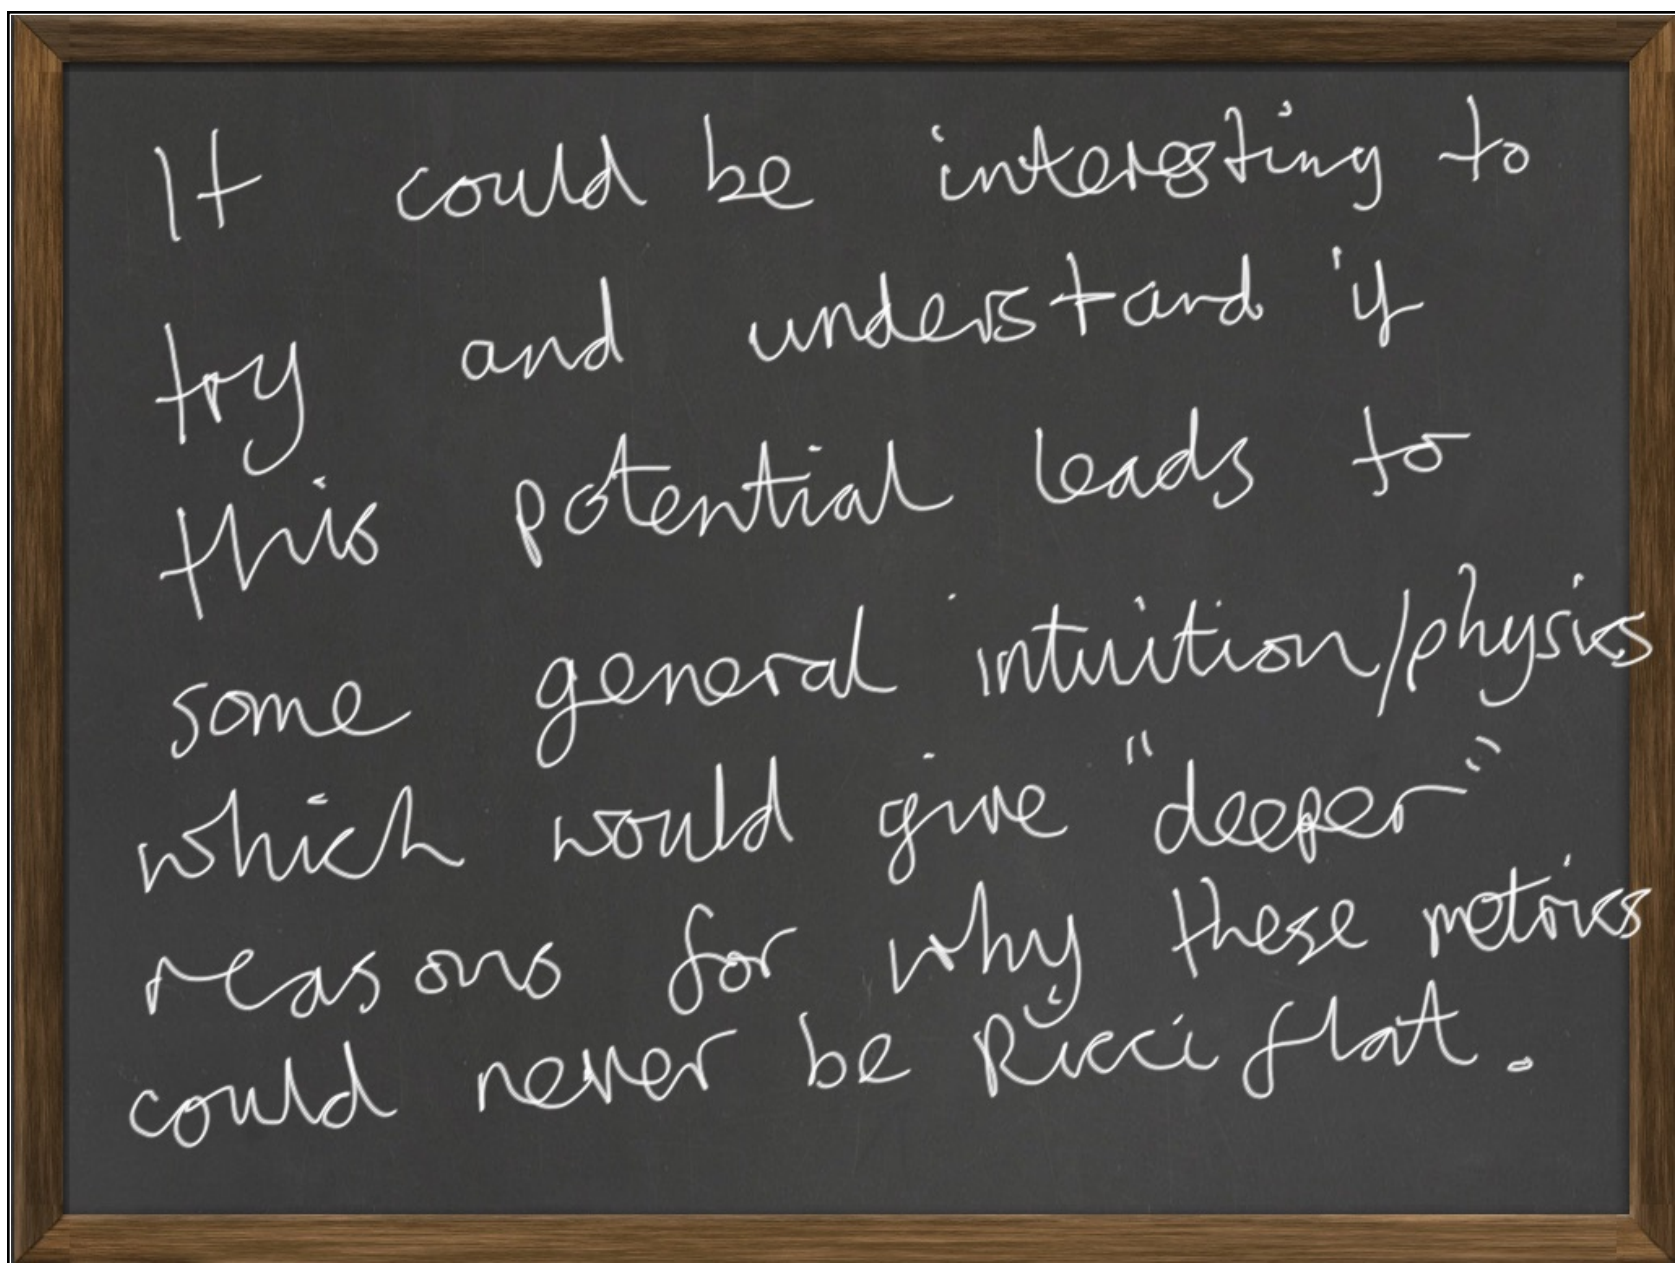 It could be interesting to
try and understand if
this potential leads to
some general intuition/physics
which would give "deeper"
reasons for why these metrics
could never be Ricci flat.